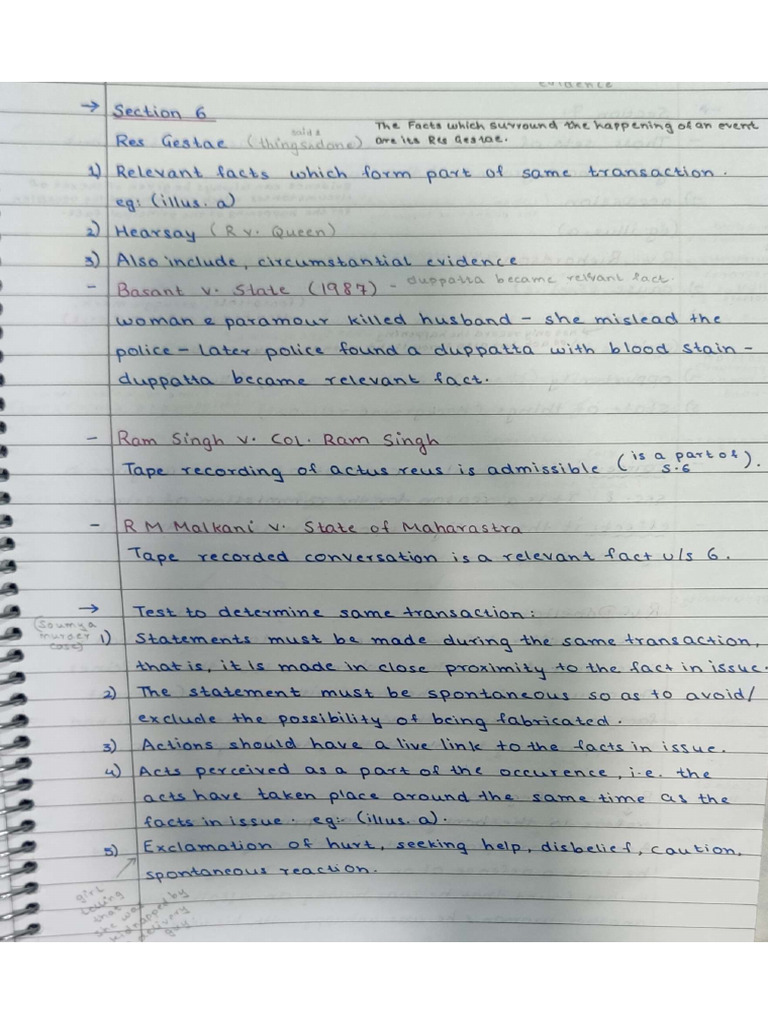 evidence
→ Section 6
Res Gestae (things said & done) The Facts which surround the happening of an event are its Res Gestae.
1) Relevant facts which form part of same transaction.
eg: (illus. a)
2) Hearsay (R v. Queen)
3) Also include, circumstantial evidence
- Basant v. State (1987) - duppatta became relevant fact.
woman & paramour killed husband - she mislead the
police - later police found a duppatta with blood stain -
duppatta became relevant fact.
- Ram Singh v. Col. Ram Singh
Tape recording of actus reus is admissible (is a part of S.6).
- R M Malkani v. State of Maharastra
Tape recorded conversation is a relevant fact u/s 6.
→ Test to determine same transaction:
(Soumya murder case)
1) Statements must be made during the same transaction,
that is, it is made in close proximity to the fact in issue.
2) The statement must be spontaneous so as to avoid/
exclude the possibility of being fabricated.
3) Actions should have a live link to the facts in issue.
4) Acts perceived as a part of the occurence, i.e. the
acts have taken place around the same time as the
facts in issue. eg:- (illus. a).
5) Exclamation of hurt, seeking help, disbelief, caution,
spontaneous reaction.
girl
that
she was
kidnapped by
delivery
guy